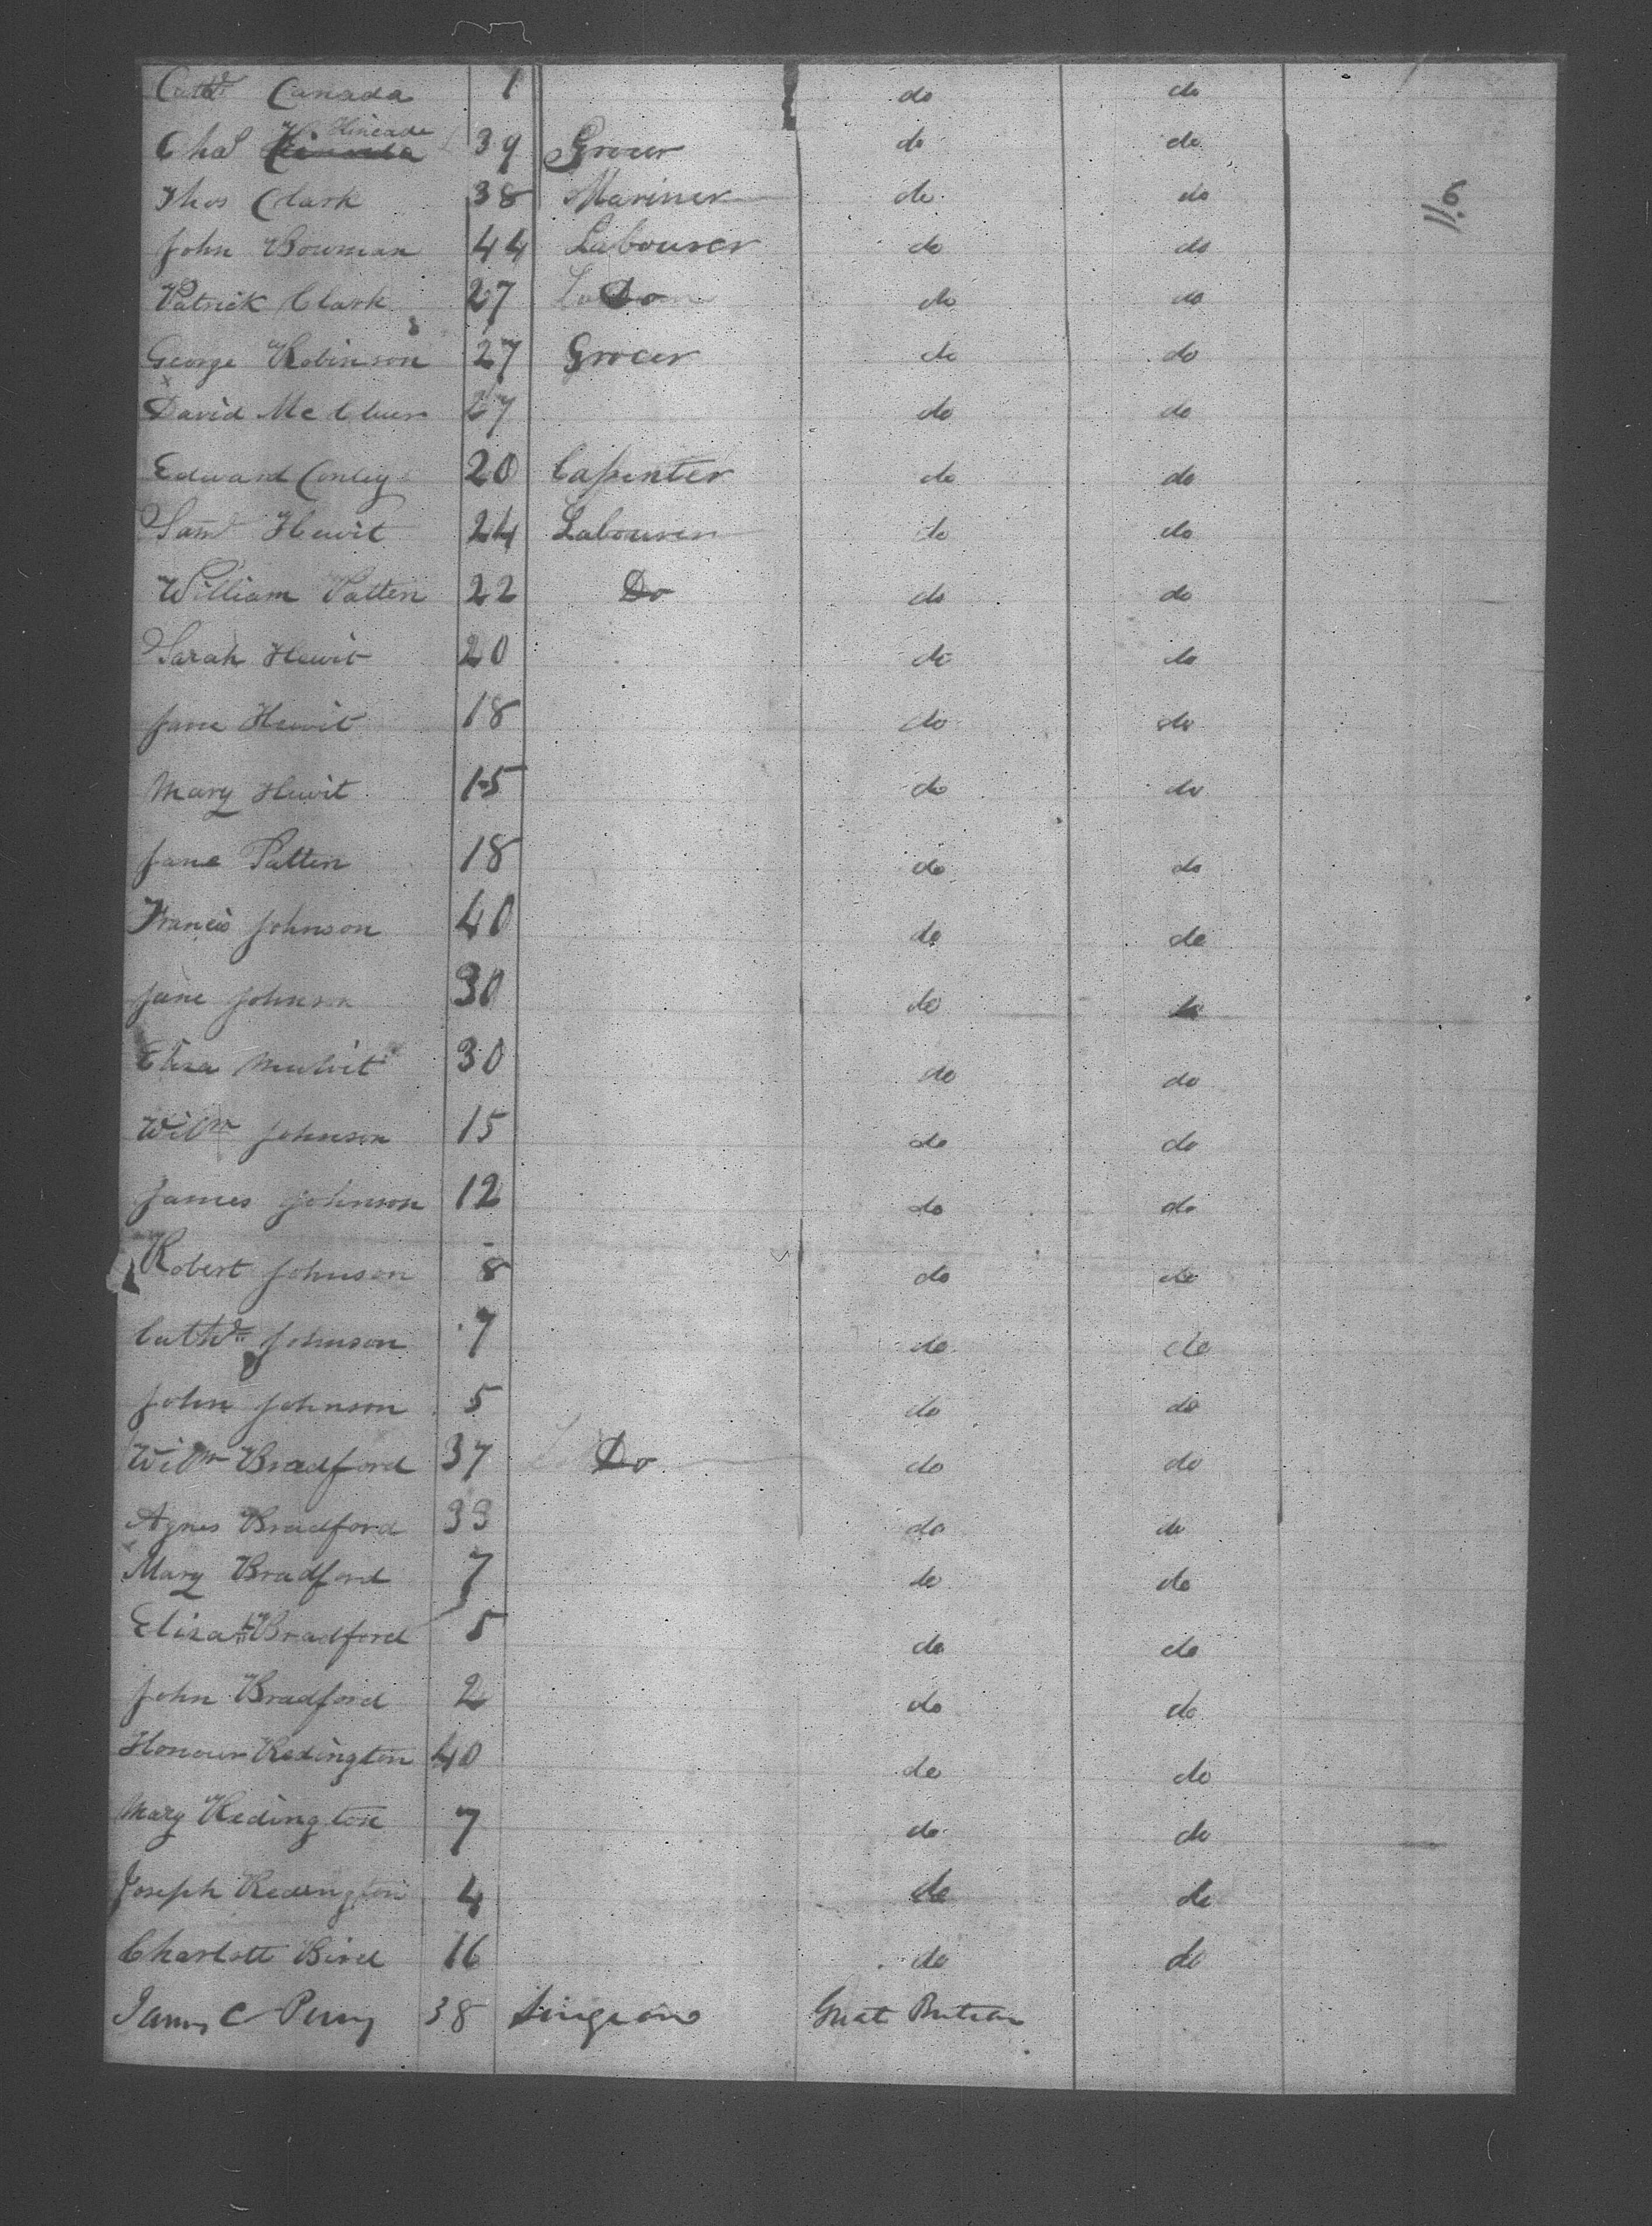 Cathe Canada 1 do do
Chas Kincade 39 Grocer do do
Thos Clark 38 Mariner do do
John Bowman 44 Labourer do do
Patrick Clark 27 Do do do
George Robinson 27 Grocer do do
David McCluer 27 do do
Edward Conley 20 Capenter do do
Saml Hewit 24 Labourer do do
William Patten 22 Do do do
Sarah Hewit 20 do do
Jane Hewit 18 do do
Mary Hewit 15 do do
Jane Patten 18 do do
Francis Johnson 40 do do
Jane Johnson 30 do do
Eliza 30 do do
Willm Johnson 15 do do
James Johnson 12 do do
Robert Johnson 8 do do
Cathe Johnson 7 do do
John Johnson 5 do do
Willm Bradford 37 Do do do
Agnes Bradford 33 do do
Mary Bradford 7 do do
Elizath Bradford 5 do do
John Bradford 2 do do
Honour Redington 40 do do
Mary Redington 7 do do
Joseph Redington 4 do do
Charlott Bird 16 do do
James C Perry 38 Surgeon Great Britain